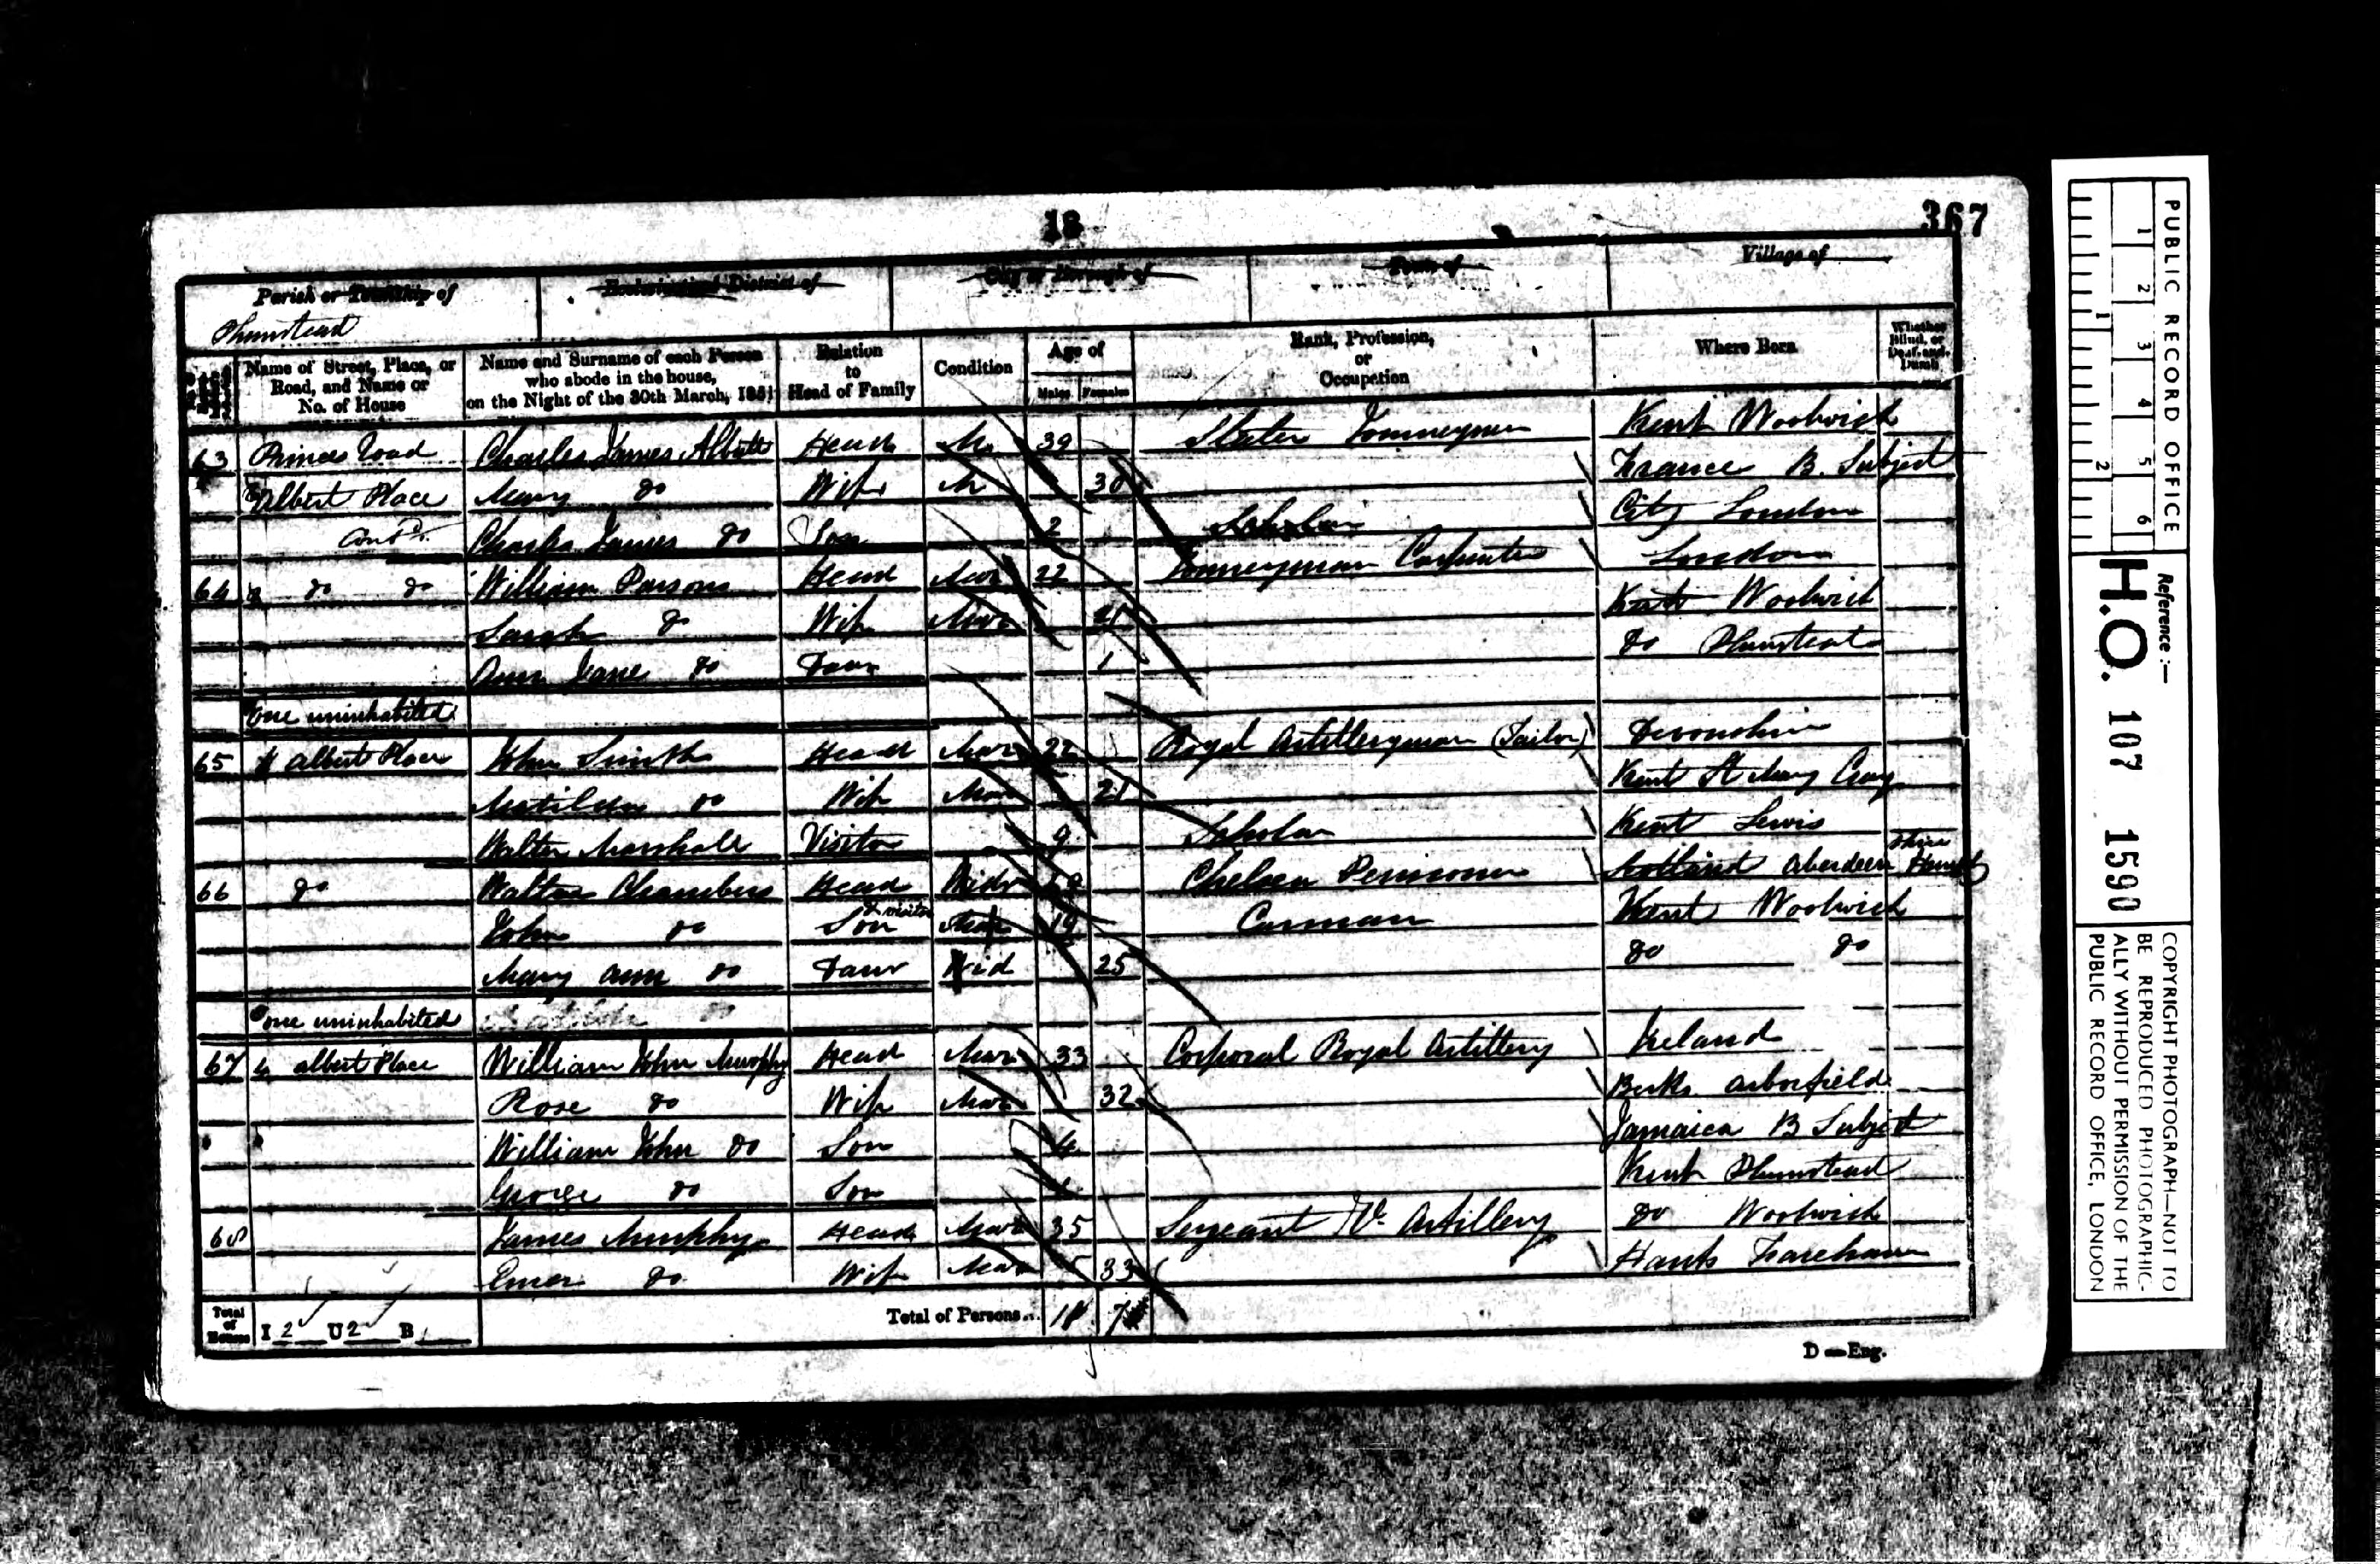 18
367
Parish or Township of
Ecclesiastical District of
City or Borough of
Town of
Village of
Plumstead
Name of Street, Place, or Road, and Name or No. of House
Name and Surname of each Person who abode in the house, on the Night of the 30th March, 1851
Relation to Head of Family
Condition
Age of
Males Females
Rank, Profession, or Occupation
Where Born
Whether Blind, or Deaf-and-Dumb
63 Princes Road Charles James Head M 39 Slater Journeyman Kent Woolwich
Albert Place Mary Do Wife M 30 France B. Subject
Contd. Charles James Do Son 2 Scholar City London
64 Do Do William Parsons Head Mar 22 Journeyman Carpenter London
Sarah Do Wife Mar 21 Kent Woolwich
Ann Jane Do Daur 1 Do Plumstead
One uninhabited
65 Albert Place John Smith Head Mar 22 Royal Artilleryman (Tailor) Devonshire
Matilda Do Wife Mar 21 Kent St Mary Cray
Walter Marshall Visitor 9 Scholar Kent Lewis
66 Do Walter Chambers Head Widr Chelsea Pensioner Scotland Aberdeen shire
John Do Son & visitor 19 Carman Kent Woolwich
Mary Ann Do Daur Wid 25 Do Do
One uninhabited
67 Albert Place William John Murphy Head Mar 33 Corporal Royal Artillery Ireland
Rose Do Wife Mar 32 Berks Arborfield
William John Do Son 4 Jamaica B Subject
George Do Son Kent Plumstead
68 James Murphy Head Mar 35 Sergeant Rl Artillery Do Woolwich
Do Wife Mar 33 Hants Fareham
Total of Houses I 2 U 2 B
Total of Persons... 7
D—Eng.
PUBLIC RECORD OFFICE
1 2 3 4 5 6
1 2
Reference:—
H.O. 107 1590
COPYRIGHT PHOTOGRAPH—NOT TO
BE REPRODUCED PHOTOGRAPHIC-
ALLY WITHOUT PERMISSION OF THE
PUBLIC RECORD OFFICE, LONDON